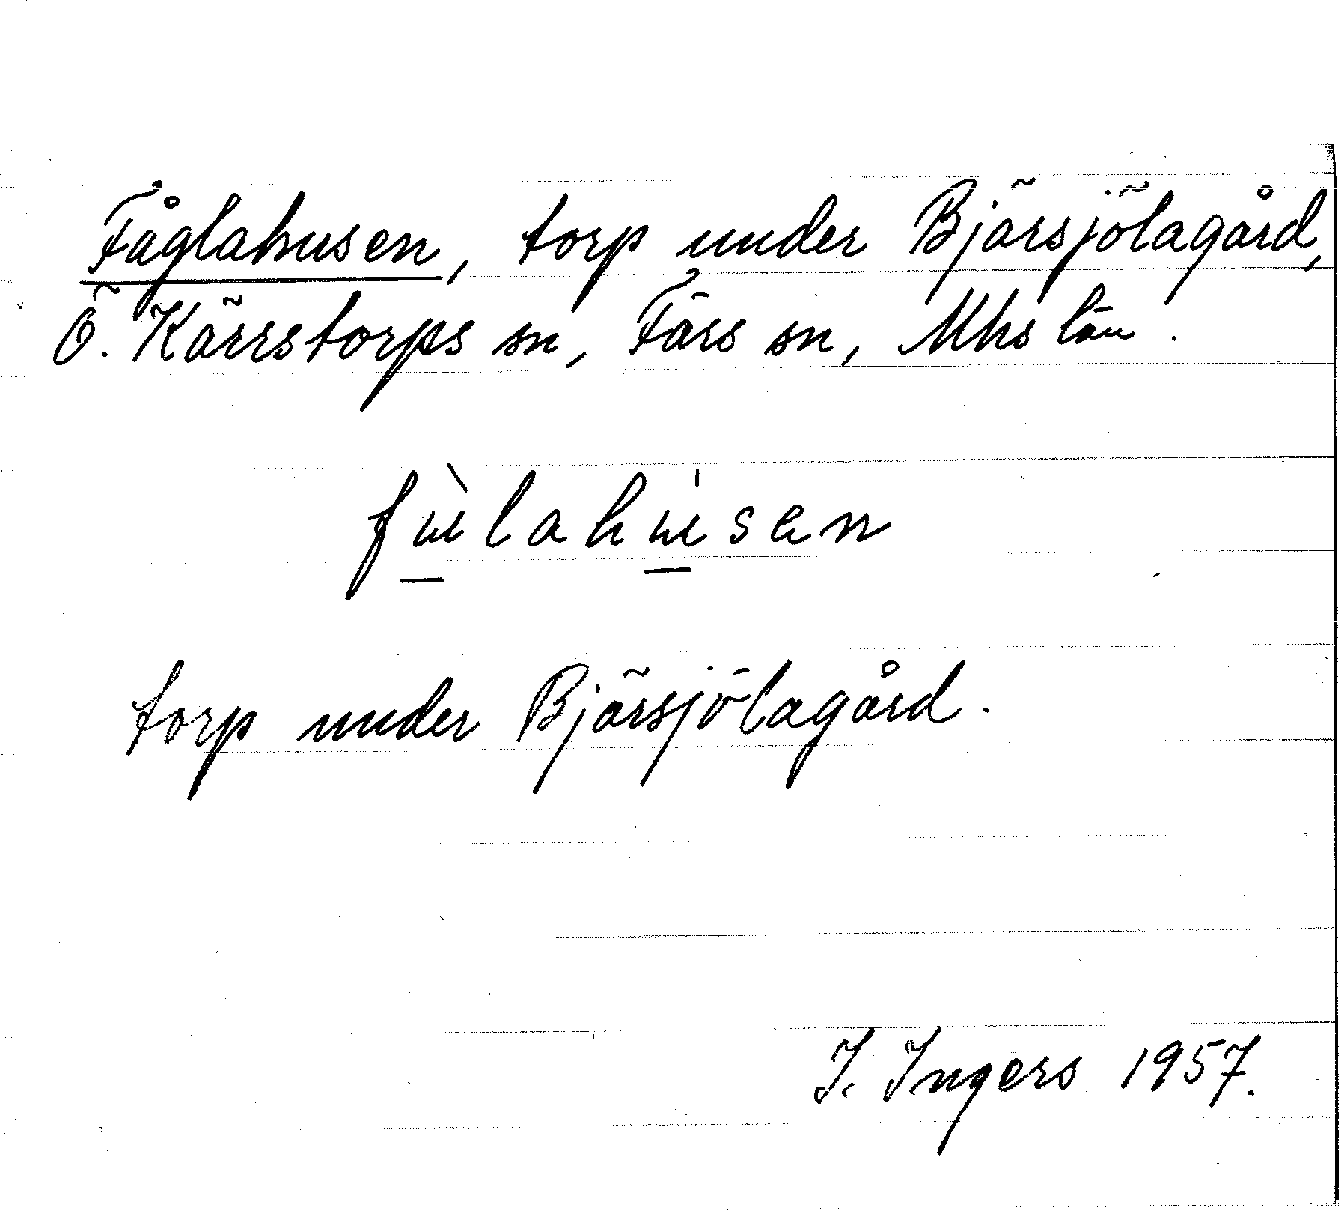 Fåglahusen, torp under Bjärsjölagård,
Ö. Kärrstorps sn, Färs sn, Mhs län.
fɯ̀lahɯ̍sen
torp under Bjärsjölagård.
I. Ingers 1957.